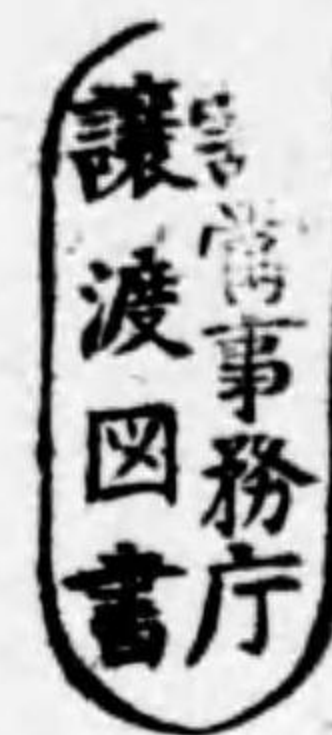 事務庁
譲渡図書